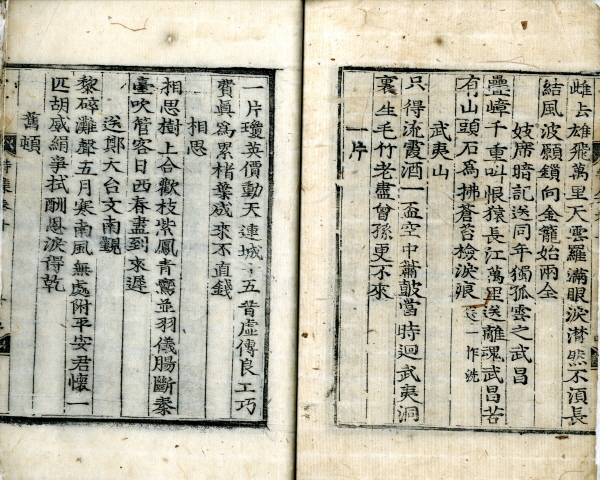 雌去雄飛萬里天雲羅滿眼淚潸然不湏長
結風波願鎖向金籠始兩全
妓席暗記送同年獨孤雲之武昌
疊嶂千重叫恨猿長江萬里送離魂武昌若
有山頭石爲拂蒼苔檢淚痕 一作洗
武夷山
只得流霞酒一盃空中簫鼓當時迴武夷洞
裏生毛竹老盡曾孫更不來
一片
一片瓊英價動天連城十五昔虛傳良工巧
費眞爲累楮葉成來不直錢
相思
相思樹上合歡枝紫鳳青鸞並羽儀腸斷秦
臺吹管客日西春盡到來遲
送鄭大台文南覲
黎碎灘聲五月寒南風無處附平安君懷一
匹胡威絹爭拭酬恩淚得乾
舊頓